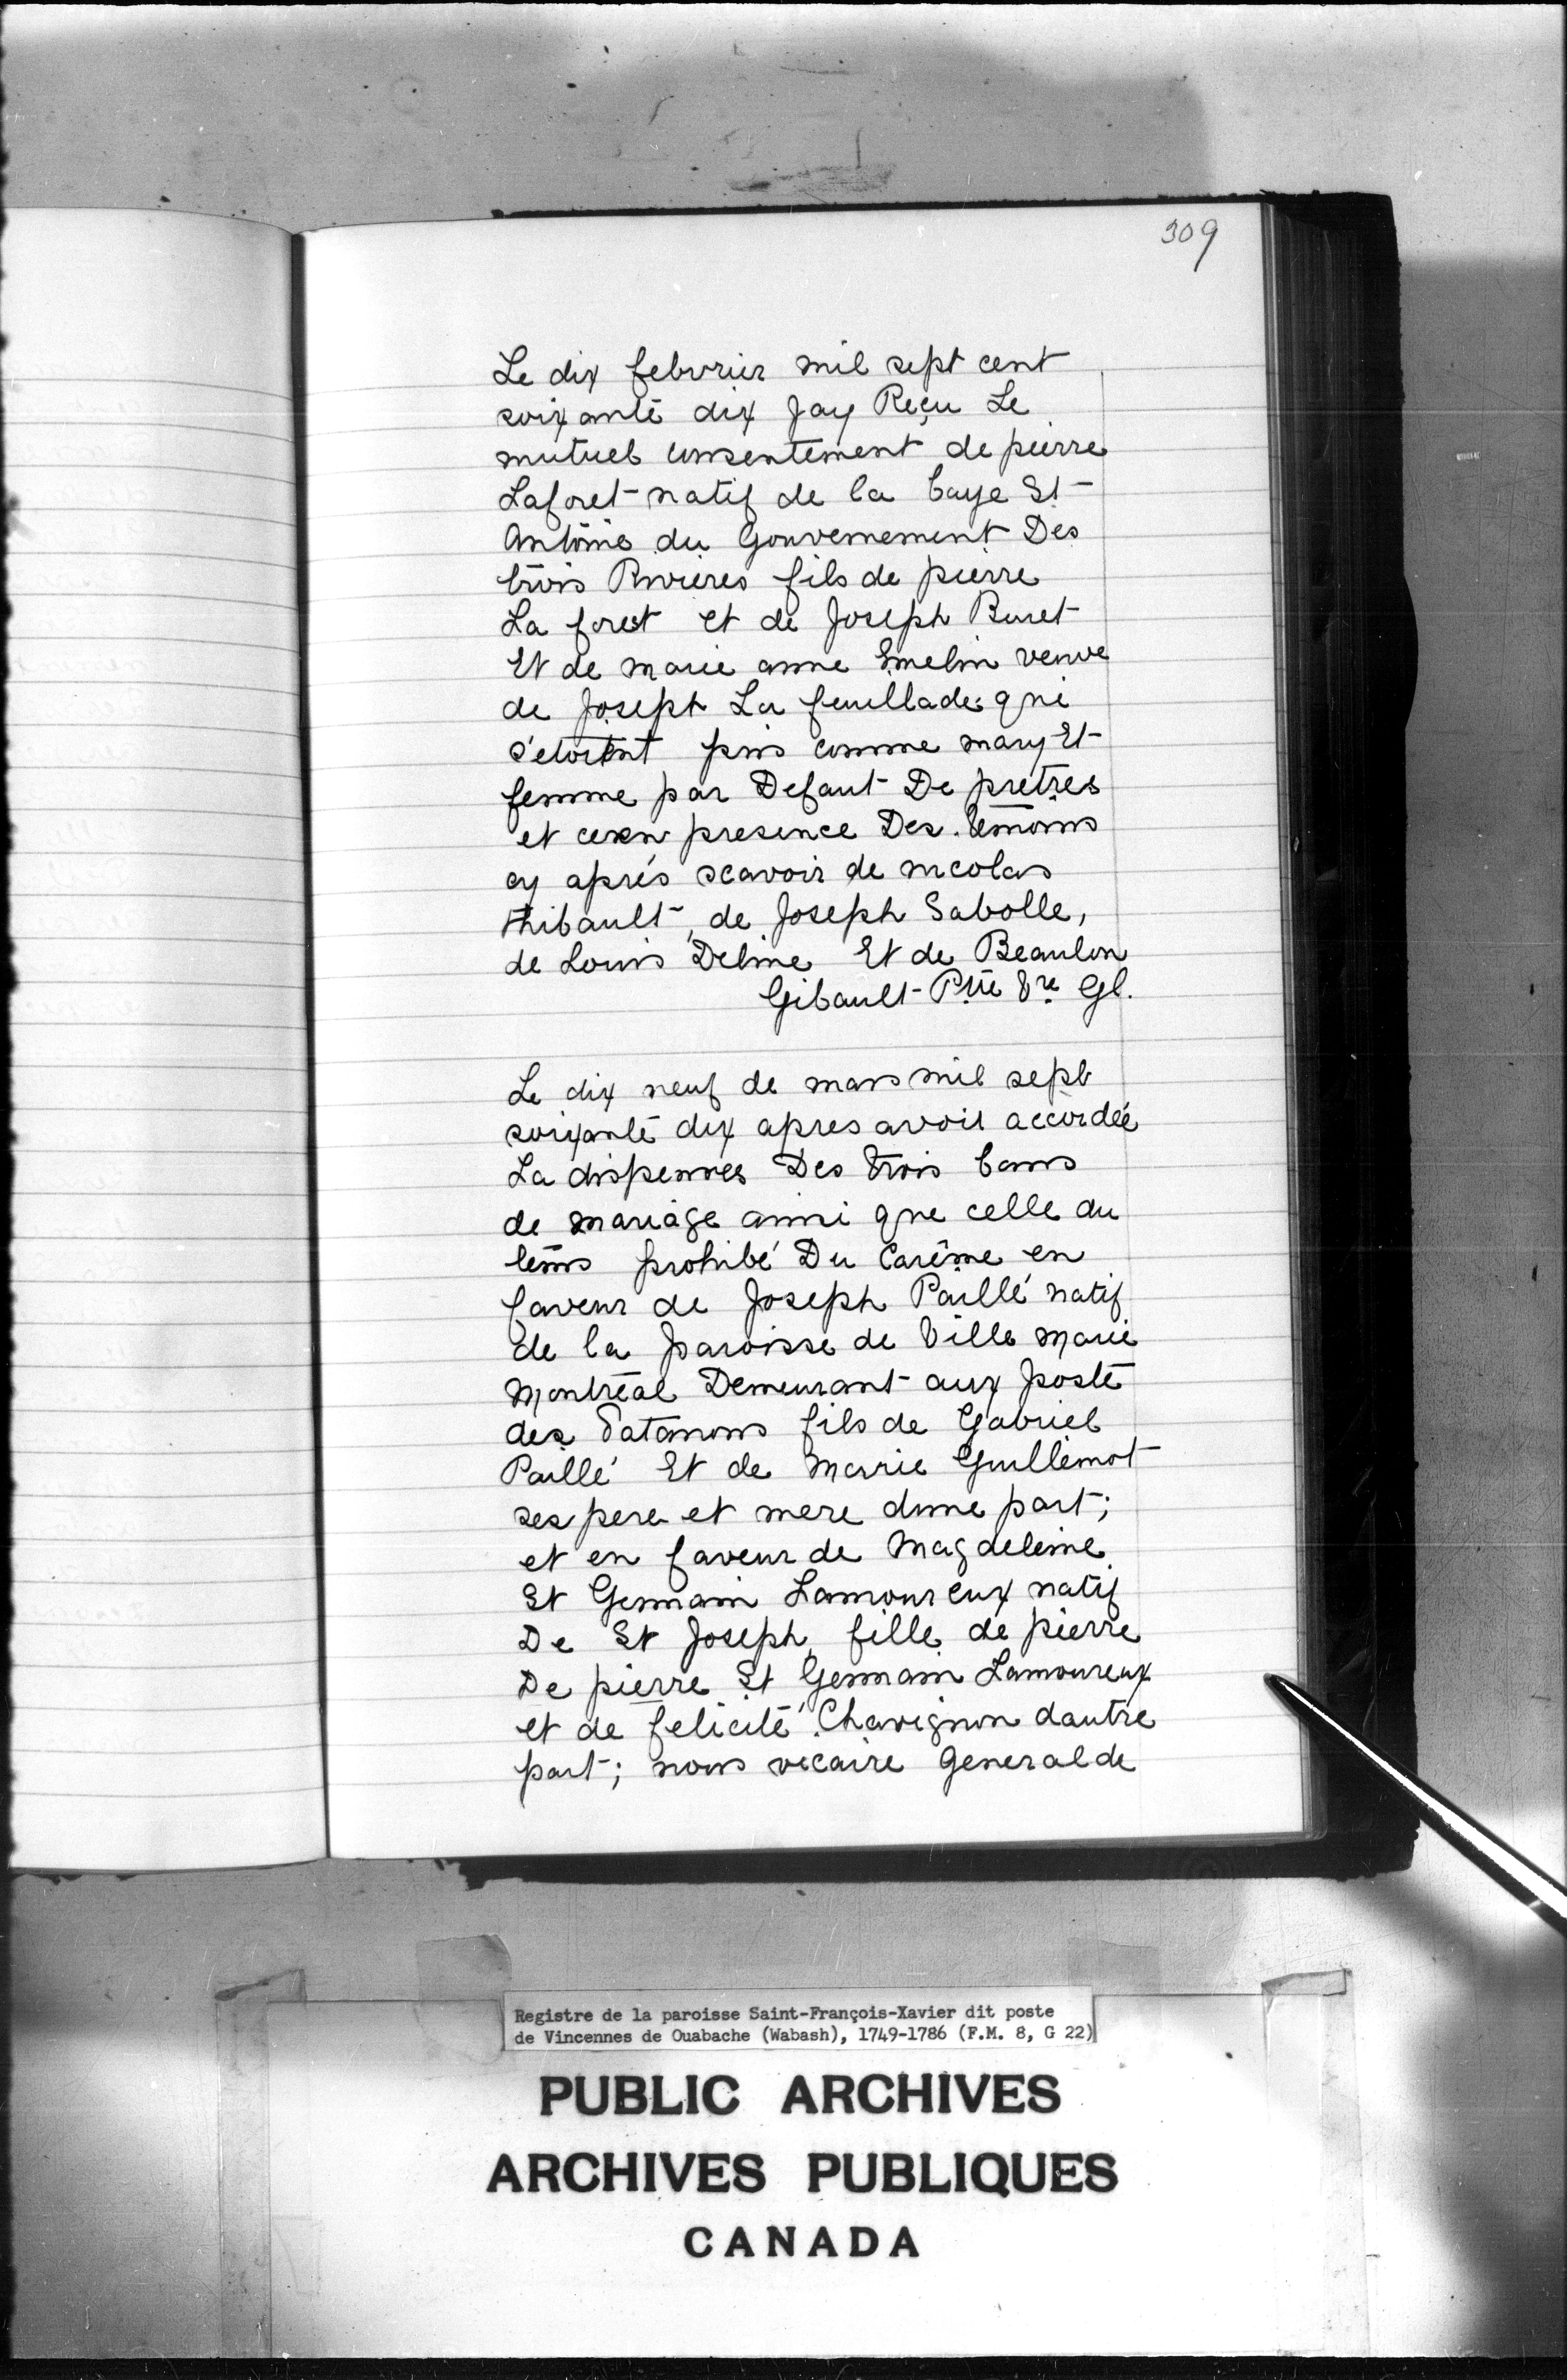 309
Le dix febvrier mil sept cent
soixante dix Jay Reçu Le
mutuel consentement de pierre
Laforet natif de la baye St
Antoine du Gouvernement Des
trois Rivieres fils de pierre
La forest et de Joseph Buret
Et de marie anne Emelin veuve
de Joseph La feuillade qui
s'etoient pris comme mary Et
femme par Defaut De pretres
et ce en presence Des temoins
cy aprés scavoir de nicolas
thibault, de Joseph Sabolle,
de Louis Deline Et de Beaulon
Gibault Ptre Vre Gl.
Le dix neuf de mars mil sept
soixante dix apres avoir accordée
La dispenses Des trois bans
de mariage ainsi que celle du
tems prohibé Du Carême en
faveur de Joseph Paillé natif
de la paroisse de Ville Marie
Montréal Demeurant aux poste
des 8atanons fils de Gabriel
Paillé Et de Marie Guillemot
ses pere et mere dune part;
et en faveur de Magdeleine
St Germain Lamoureux natif
De St Joseph, fille de pierre
De pierre St Germain Lamoureux
et de felicité Chavignon dautre
part; nous vicaire General de
Registre de la paroisse Saint-François-Xavier dit poste
de Vincennes de Ouabache (Wabash), 1749-1786 (F.M. 8, G 22)
PUBLIC ARCHIVES
ARCHIVES PUBLIQUES
CANADA